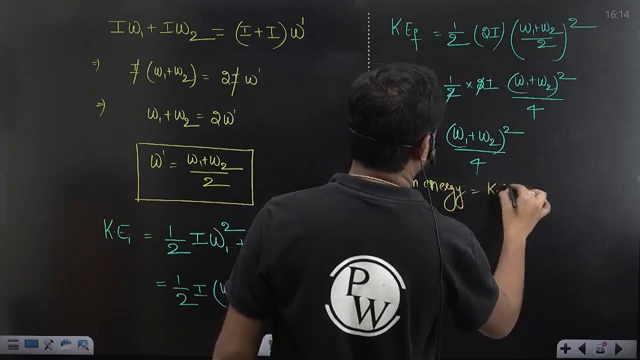 16:14
Iω₁ + Iω₂ = (I+I)ω'
⇒ I(ω₁+ω₂) = 2Iω'
⇒ ω₁+ω₂ = 2ω'
ω' = (ω₁+ω₂)/2
K.Eᵢ = 1/2 Iω₁² +
= 1/2 I(ω
K.E_f = 1/2 (2I) ((ω₁+ω₂)/2)²
1/2 × 2I (ω₁+ω₂)²/4
(ω₁+ω₂)²/4
energy = K.
P
W